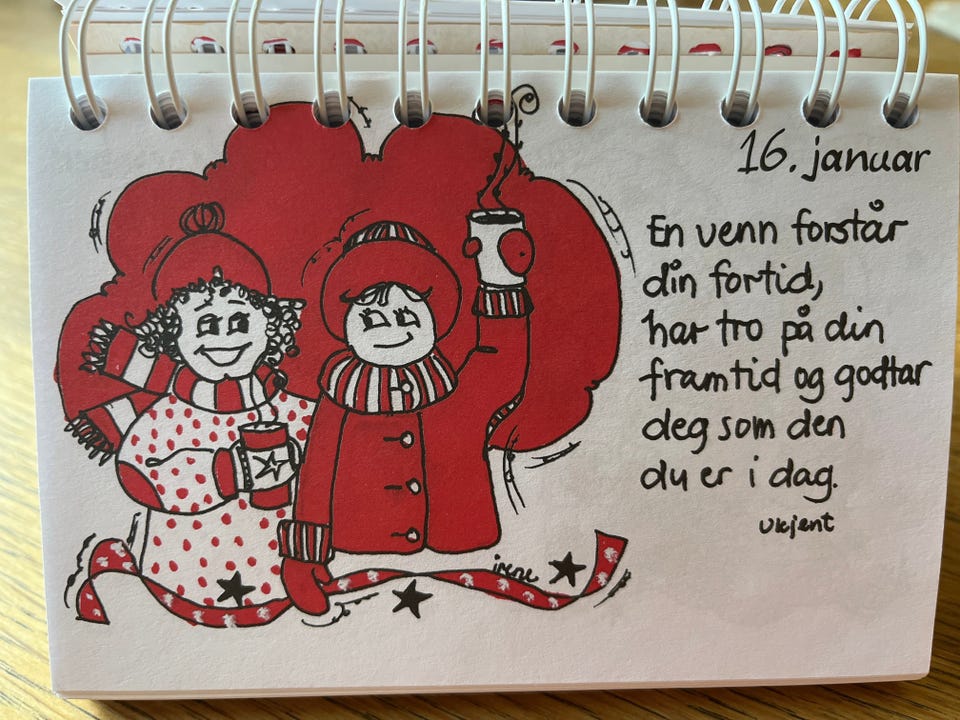 16. januar
En venn forstår
din fortid,
har tro på din
framtid og godtar
deg som den
du er i dag.
Ukjent
irene